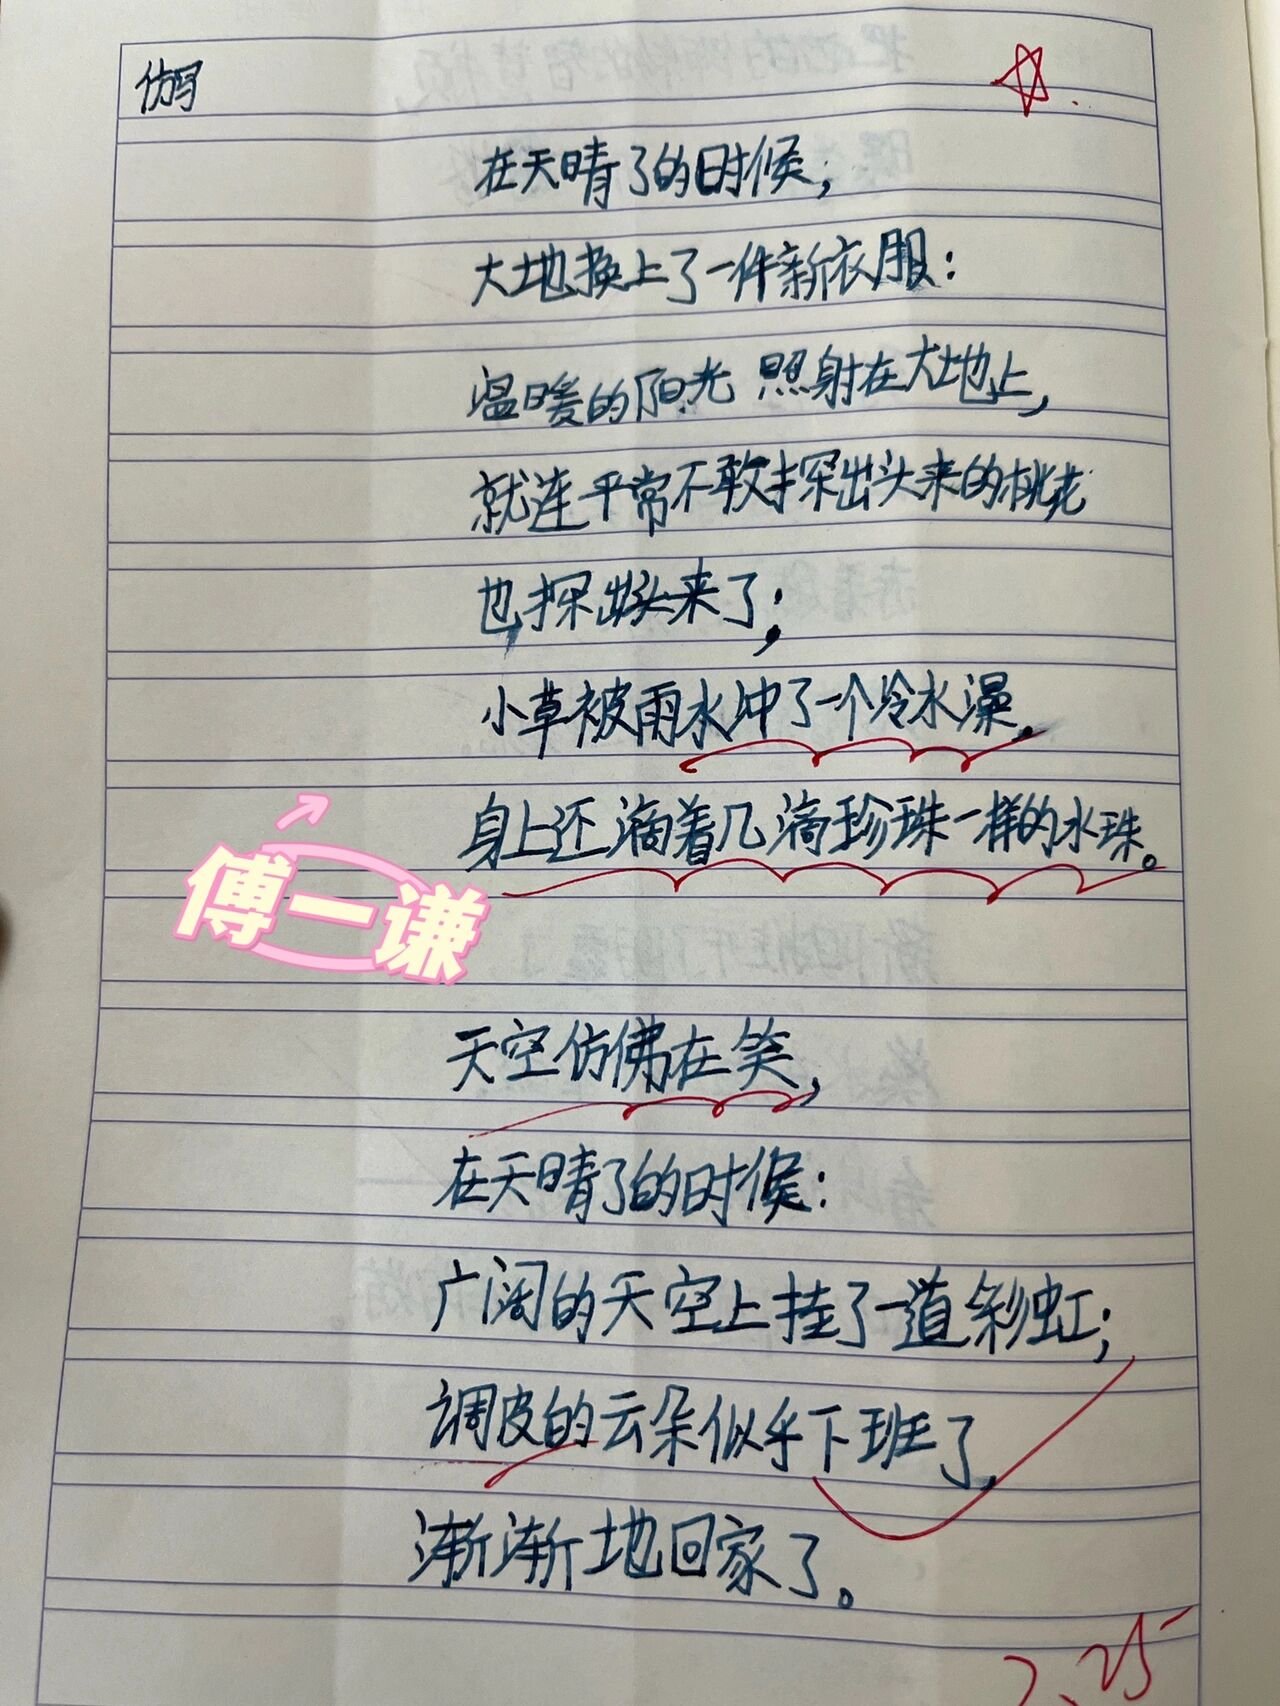 仿写
在天晴了的时候；
大地换上了一件新衣服：
温暖的阳光照射在大地上，
就连平常不敢探出头来的桃花
也探出头来了；
小草被雨水冲了一个冷水澡。
身上还滴着几滴珍珠一样的水珠。
傅一谦
天空仿佛在笑，
在天晴了的时候：
广阔的天空上挂了一道彩虹；
调皮的云朵似乎下班了，
渐渐地回家了。
2.25